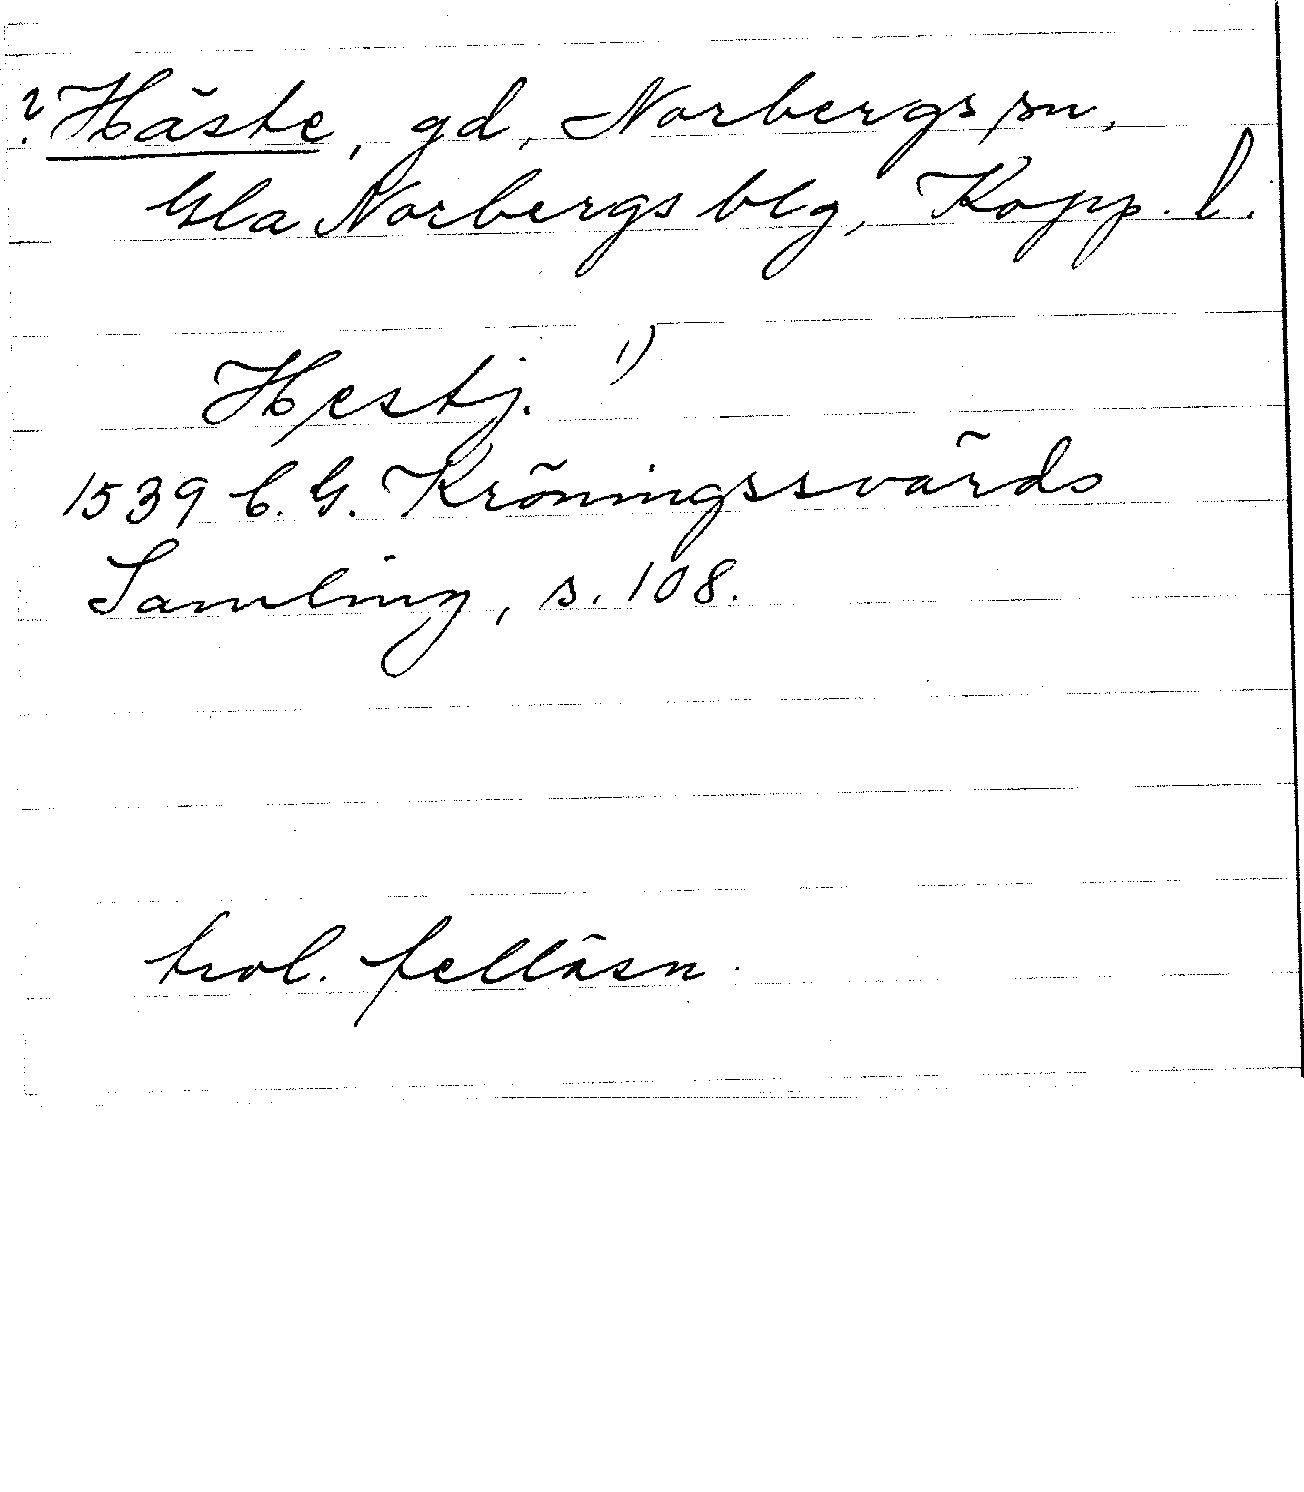 ? Häste, gd, Norbergs sn,
Gla Norbergs blg, Kopp. l.
Hestj. 1)
1539 C. G. Kröningssvärds
Samling, s. 108.
trol. felläsn.